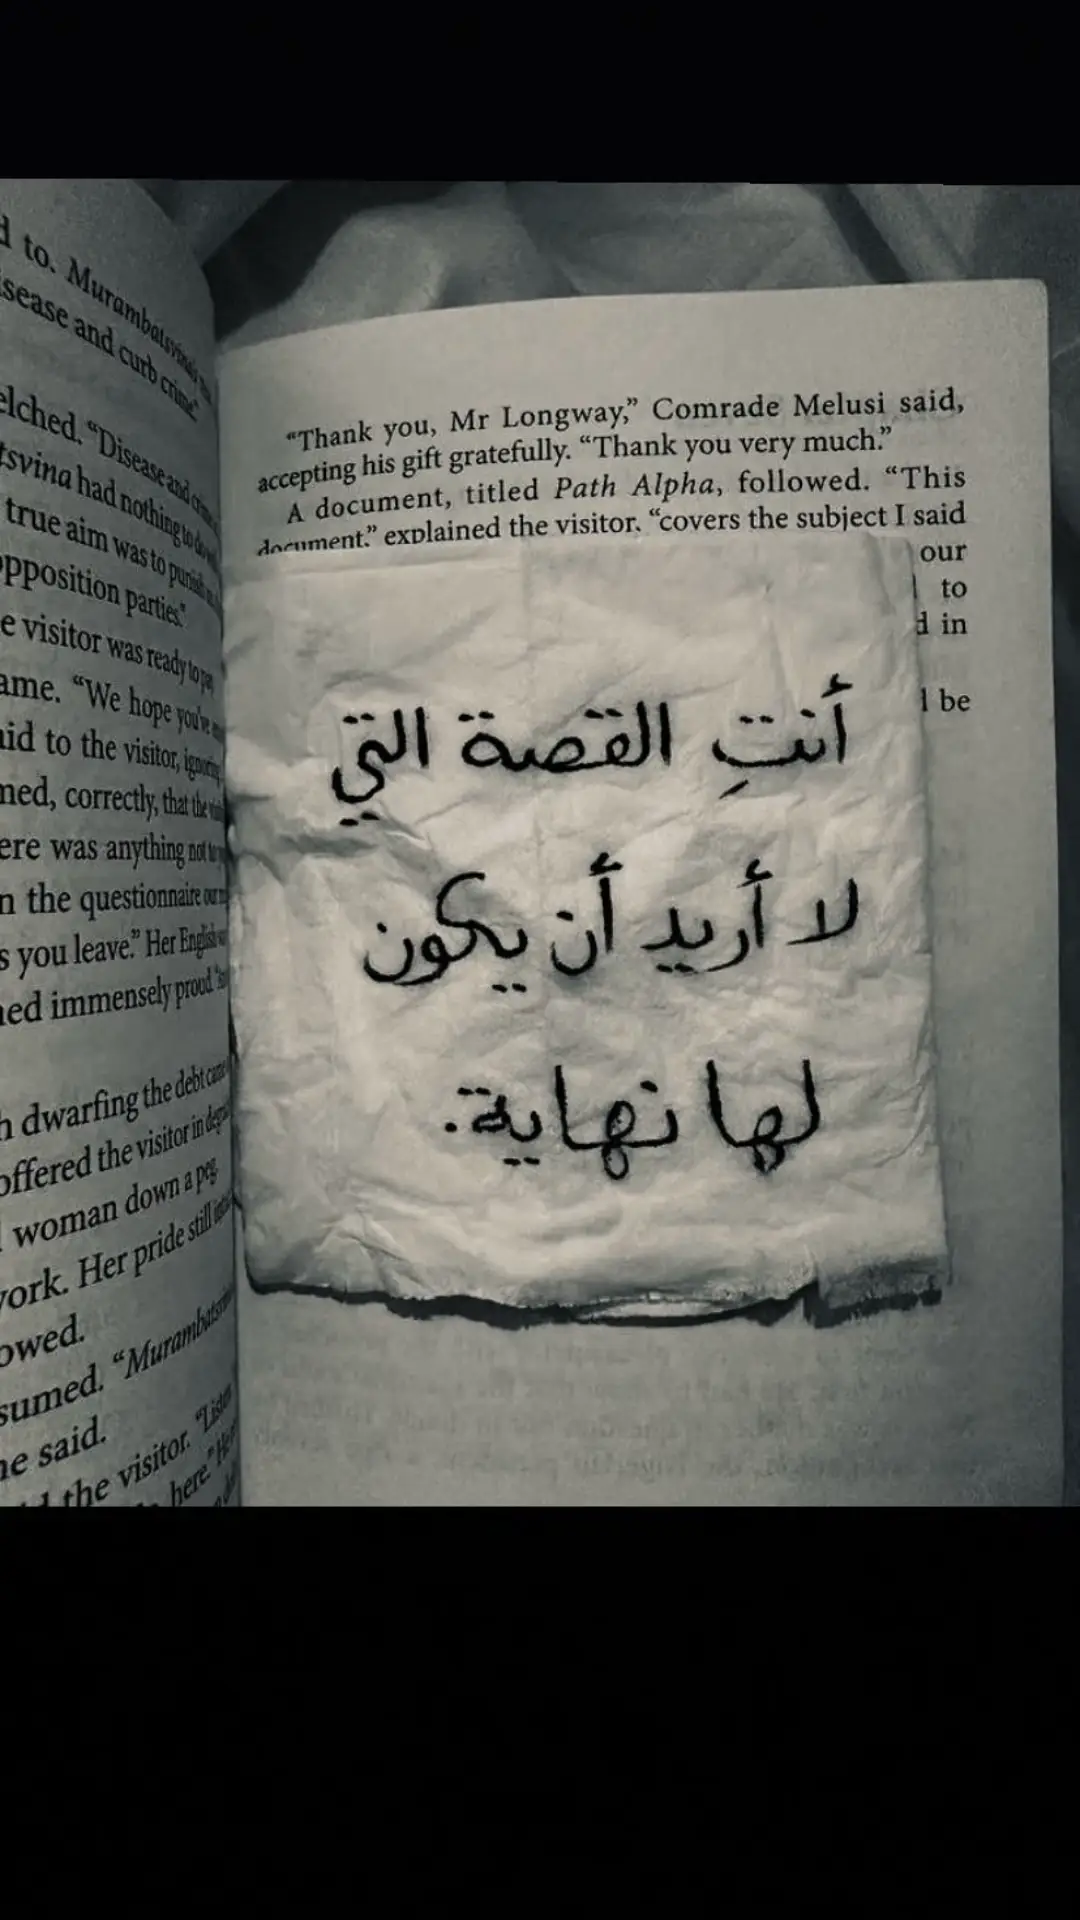 to. Murambatsvina
sease and curb crime."
elched. "Disease and
tsvina had nothing to do
true aim was to punish
opposition parties."
e visitor was ready to
ame. "We hope you've
aid to the visitor, ignoring
med, correctly, that the
ere was anything not to
n the questionnaire our
s you leave." Her English
ned immensely proud.
h dwarfing the debt
offered the visitor in
woman down a peg.
ork. Her pride still
owed.
sumed. "Murambatsvina
he said.
the visitor. "Listen
here." Her
"Thank you, Mr Longway," Comrade Melusi said,
accepting his gift gratefully. "Thank you very much."
A document, titled Path Alpha, followed. "This
document." explained the visitor. "covers the subject I said
our
to
d in
l be
أنتِ القصة التي
لا أريد أن يكون
لها نهاية.